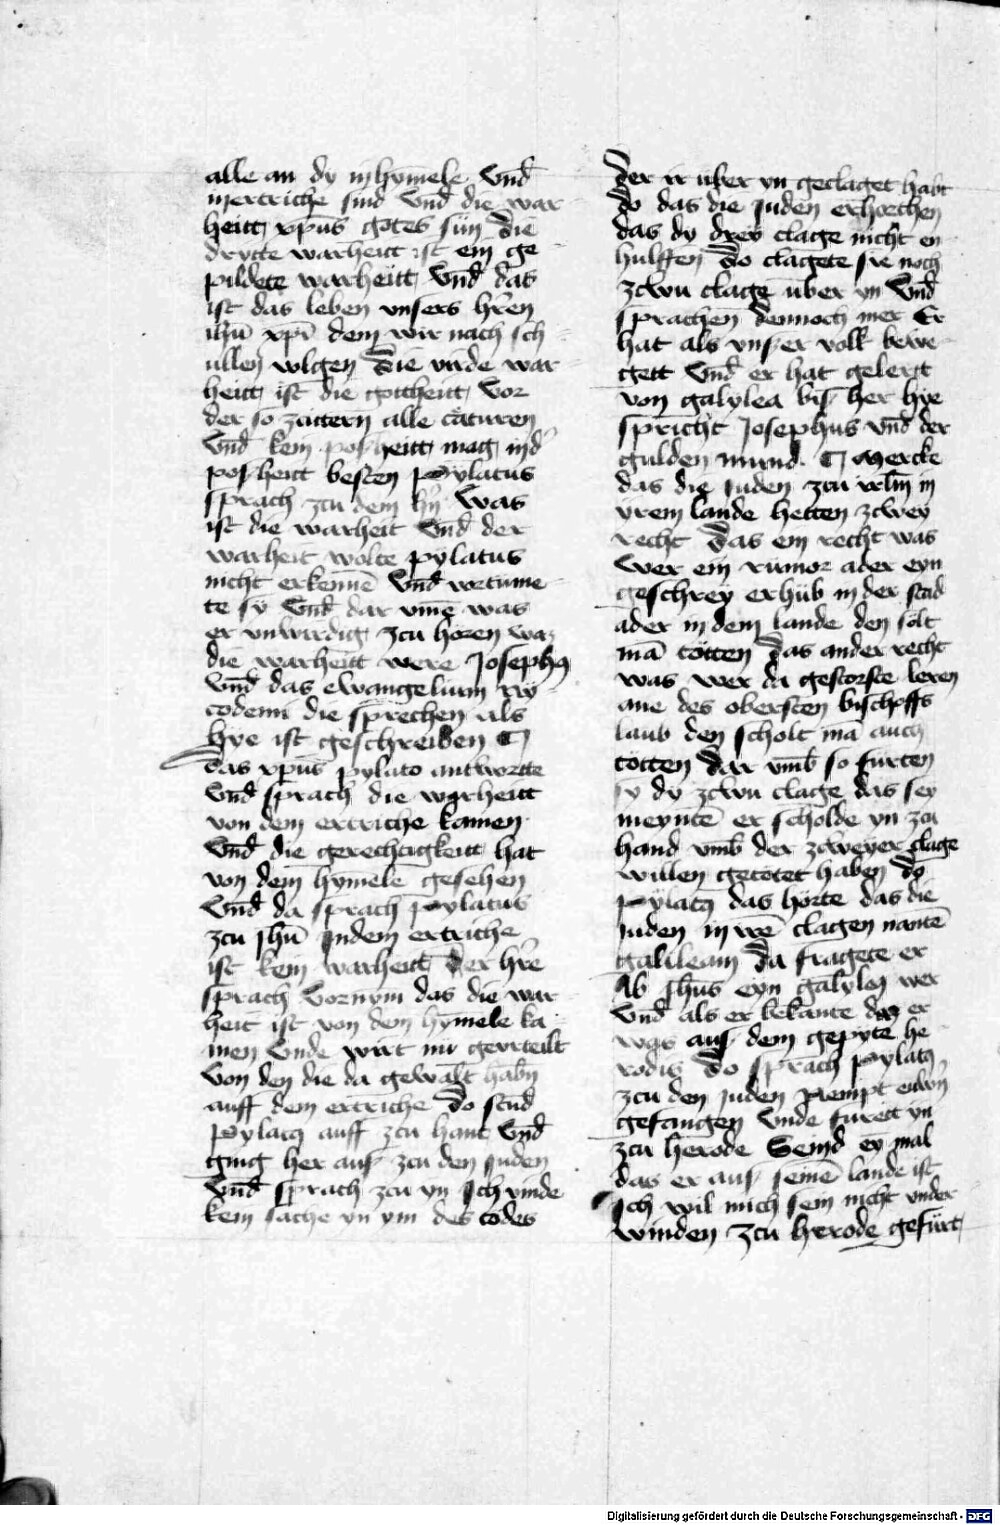 alle an dy in hymele Vnd̄
in ertriche sind Vnd̄ die war
heitt xpūs gotes sūn die
drytte warheitt ist ein ge
pildete warheitt Vnd̄ das
ist das leben vnsers hr̄en
ihū xpī dem wir nach sch
ullen volgen die virde war
heitt ist die gottheitt vor
der so zcittern alle cāturen
Vnd̄ kein posheitt mag
posheit besten Pylatus
sprach zcu dem hn̄ was
ist die warheit Vnd̄ der
warheit wolte pylatus
nicht erkennē Vnd̄
te sy Vnd̄ dar vmē was
er vnwirdig zcu horen waz
die warheitt were Josephq
Vnd̄ das ewangelium ny
codemi die sprechen als
hye ist geschreiben
das xpūs pylato antwortte
Vnd̄ sprach die warheitt
von dem ertriche kamen
Vnd̄ die gerechtigkeitt hat
von dem hymele gesehen
Vnd̄ da sprach Pylatus
zcu Jhū Indem ertriche
ist kein warheitt der hr̄e
sprach Vornym das die war
heit ist von dem hymele ka
men Vnde wirt nu gevrteilt
von den die da gewalt habn̄
auff dem ertriche do stūd
Pylatq auff zcu hant Vnd̄
ging her aus zcu den Juden
Vnd̄ sprach zcu yn Ich vinde
kein sache yn ym des todes
der ir uber yn geclaget habt
do das die Juden erhorchen
das dy drey clage nicht en
hulffen do clagete sie noch
zcwu clage uber yn Vnd̄
sprachen dennoch mer Er
hat als vnser volk bewe
gett Vnd̄ er hat gelertt
von galylea bis her hye
spricht Josephus vnd̄ der
gulden mund. Mercke
das die Juden zcu in
yrem lande hetten zcwey
recht das ein recht was
wer ein rumor ader eyn
geschrey erhub in der stad
ader in dem lande den solt
mā totten das ander recht
was wer da leren
ane des obersten bischoffs
laub den scholt mā auch
totten dar vmb so furten
sy dy zcwu clage das sey
meyntē er scholde yn zcu
hand vmb der zcweyer clage
willen getotet haben do
Pylatq das horte das die
Juden in clagen nantē
galileam da fragete er
Ab Jhūs eyn galyley wer
Vnd̄ als er bekante das er
was aus dem gepyte he
rodis do sprach Pylatq
zcu den Juden nempt
gefangen Vnde furett yn
zcu herode Seind ey mal
das er aus seinē lande ist
Ich wil mich sein nicht vnder
winden zcu herode gefurt
Digitalisierung gefördert durch die Deutsche Forschungsgemeinschaft - DFG